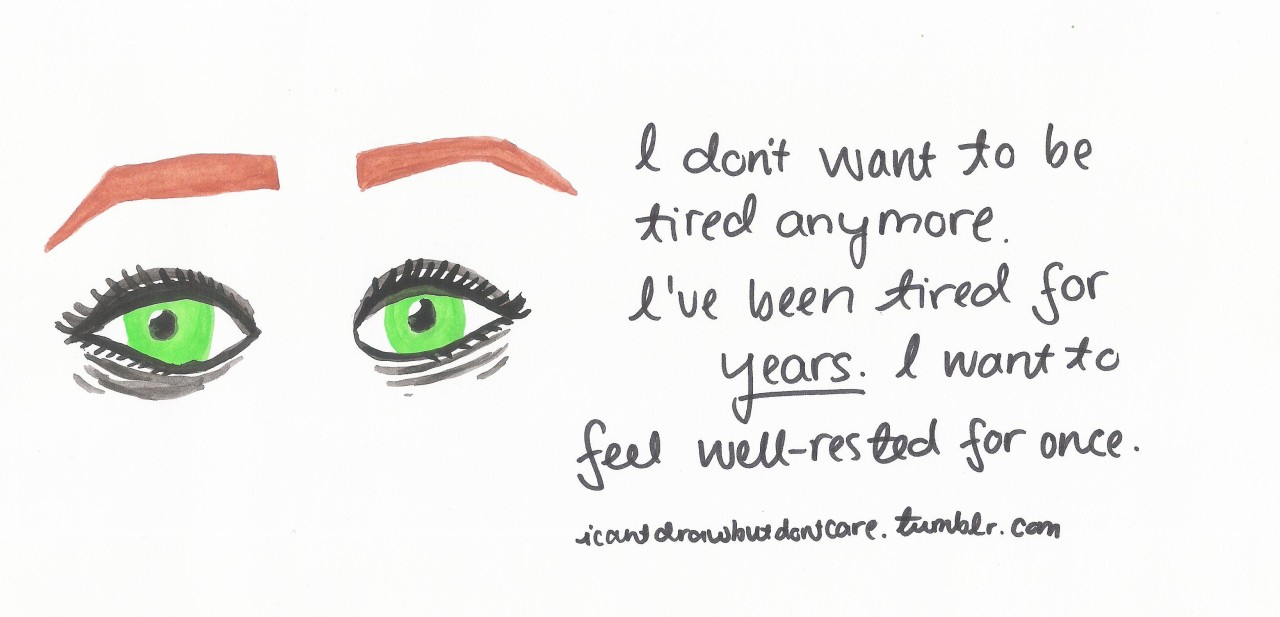 I don't want to be
tired anymore.
I've been tired for
years. I want to
feel well-rested for once.
icantdrawbutdontcare.tumblr.com